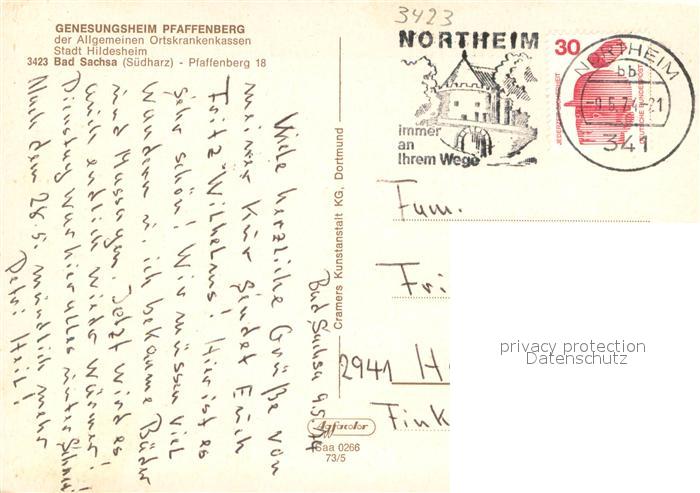 GENESUNGSHEIM PFAFFENBERG
der Allgemeinen Ortskrankenkassen
Stadt Hildesheim
3423 Bad Sachsa (Südharz) - Pfaffenberg 18
3423
NORTHEIM
immer
an
Ihrem Wege
30
JEDERZEIT SICHERHEIT
DEUTSCHE BUNDESPOST
NORTHEIM
bb
-9.5.74-21
341
Bad Sachsa 9.5.74
Viele herzliche Grüße von
meiner Kur sendet Euch
Fritz Wilhelms! Hier ist es
sehr schön! Wir müssen viel
wandern u. ich bekomme Bäder
und Massagen. Jetzt wird es
auch endlich wieder wärmer!
Dienstag war hier alles unter Schnee!
Nach dem 28.5. mündlich mehr
Petri Heil!
Cramers Kunstanstalt KG, Dortmund
Agfacolor
Saa 0266
73/5
Fam.
Fri
2941 H
Fink
privacy protection
Datenschutz